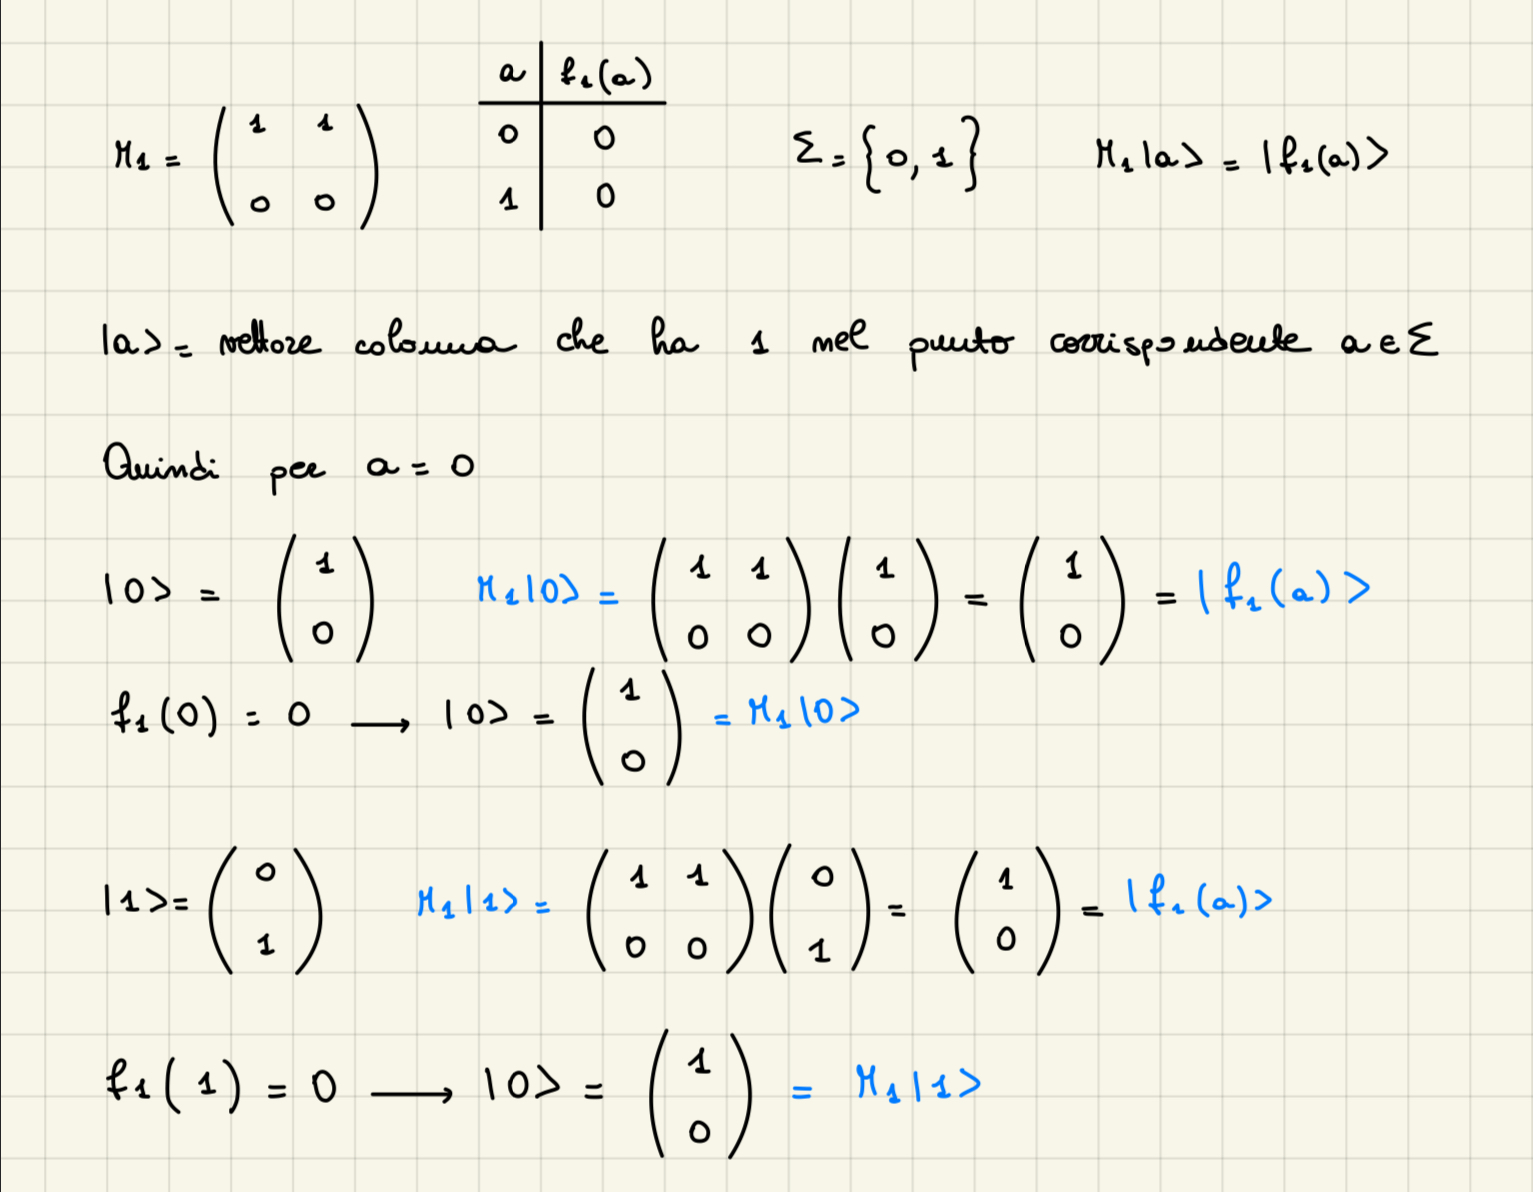 M₁ = ( 1 1 ; 0 0 )   a | f₁(a)   0 | 0   1 | 0   Σ = {0, 1}   M₁|a> = |f₁(a)>
|a> = vettore colonna che ha 1 nel punto corrispondente a ∈ Σ
Quindi per a = 0
|0> = ( 1 ; 0 )   M₁|0> = ( 1 1 ; 0 0 ) ( 1 ; 0 ) = ( 1 ; 0 ) = |f₁(a)>
f₁(0) = 0 ⟶ |0> = ( 1 ; 0 ) = M₁|0>
|1> = ( 0 ; 1 )   M₁|1> = ( 1 1 ; 0 0 ) ( 0 ; 1 ) = ( 1 ; 0 ) = |f₁(a)>
f₁(1) = 0 ⟶ |0> = ( 1 ; 0 ) = M₁|1>